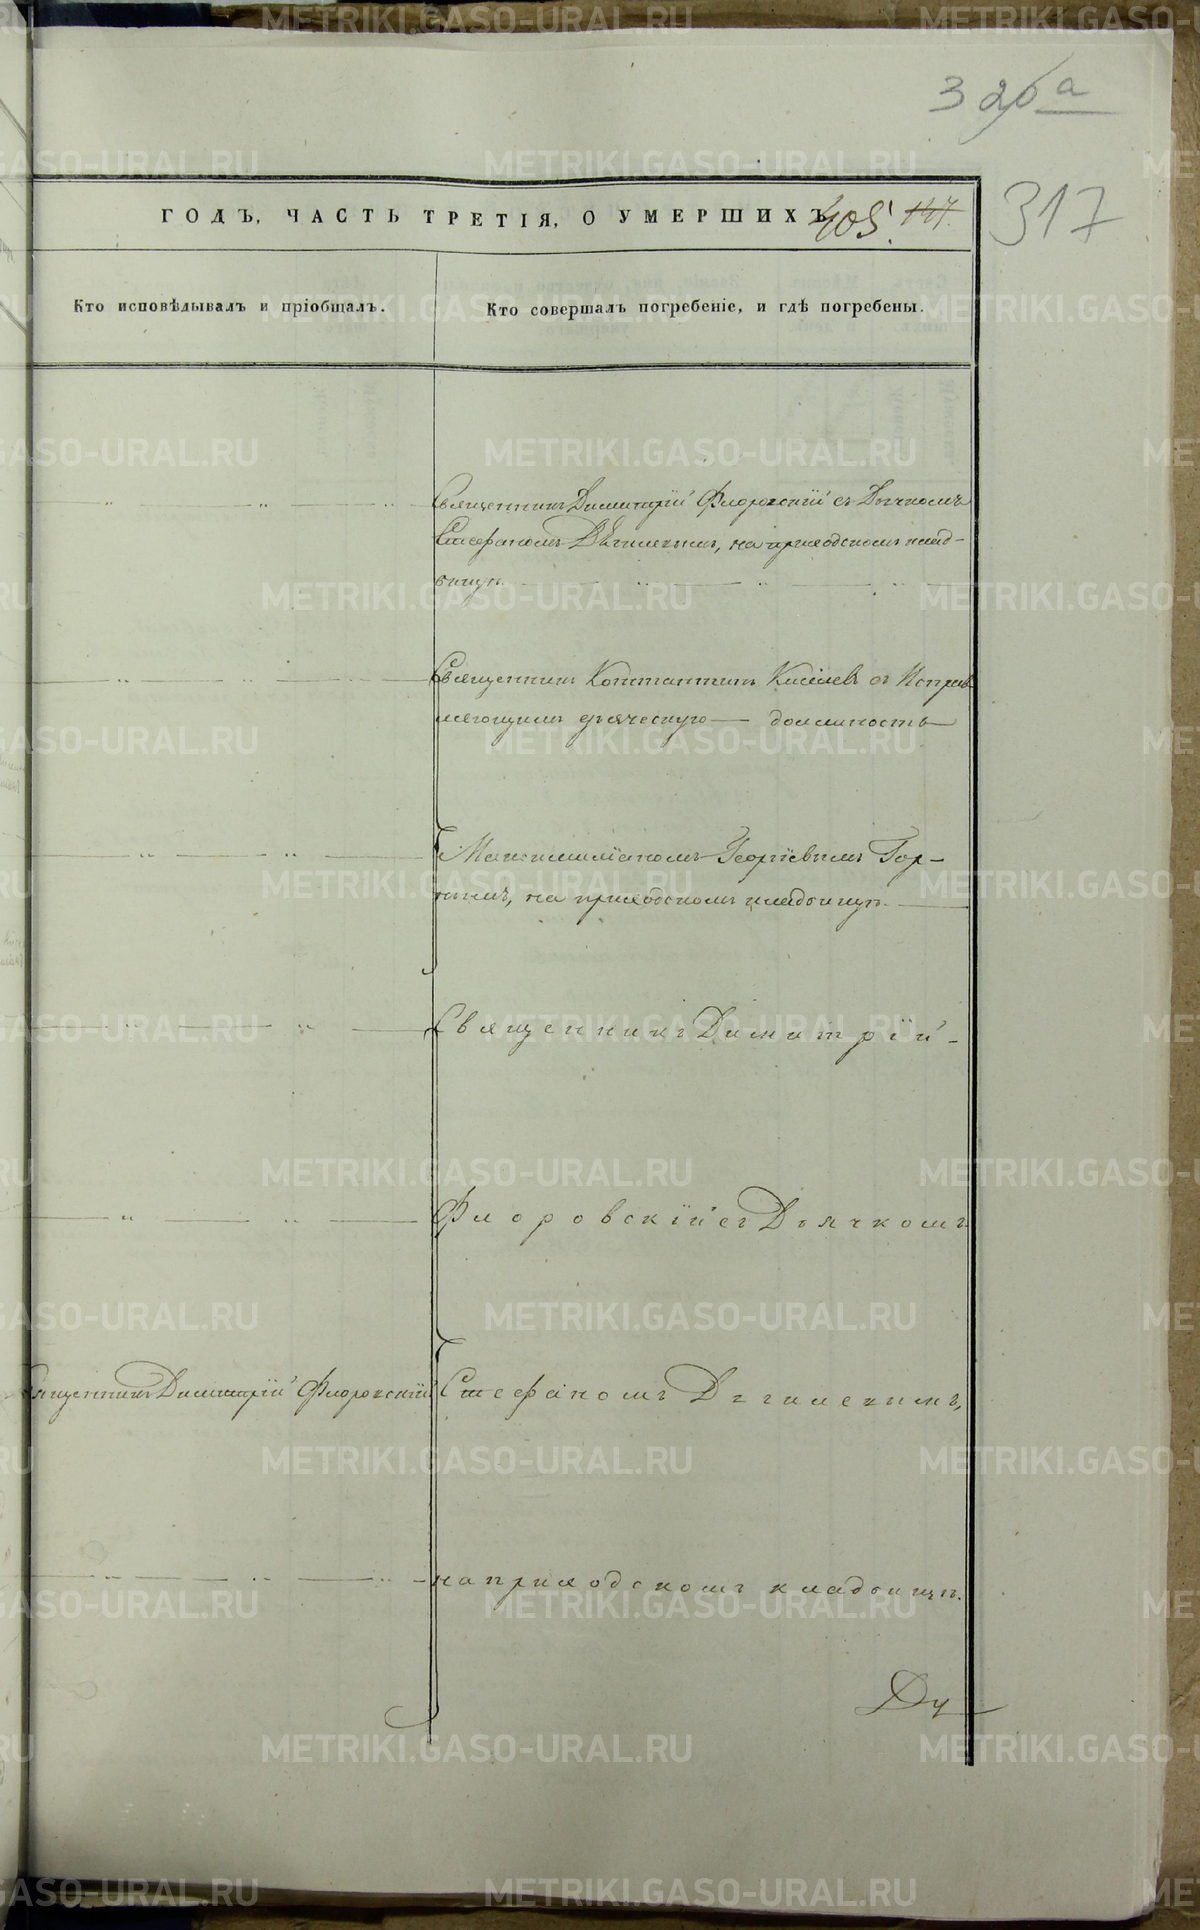 326а
317
ГОДЪ, ЧАСТЬ ТРЕТІЯ, О УМЕРШИХЪ 405.
Кто исповѣдывалъ и пріобщалъ.
Кто совершалъ погребеніе, и гдѣ погребены.
Священникъ Димитрій Флоровскій съ Дьячкомъ
Стефаномъ Дягилевымъ, на приходскомъ клад-
бищѣ.
Священникъ Константинъ Киселевъ съ Исправ
ляющимъ дьяческую должность
Максимиліаномъ Георгіевымъ Гор-
нымъ, на приходскомъ кладбищѣ.
Священникъ Димитрій
Флоровскій съ Дьячкомъ
Священникъ Димитрій Флоровскій
Стефаномъ Дягилевымъ,
на приходскомъ кладбищѣ.
METRIKI.GASO-URAL.RU